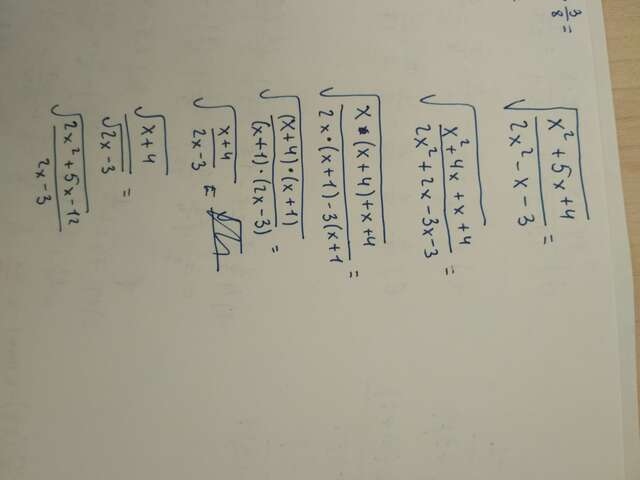 3/8 =
√((x² + 5x + 4)/(2x² - x - 3)) =
√((x² + 4x + x + 4)/(2x² + 2x - 3x - 3)) =
√((x · (x + 4) + x + 4)/(2x · (x + 1) - 3(x + 1)) =
√(((x + 4) · (x + 1))/((x + 1) · (2x - 3))) =
√((x + 4)/(2x - 3)) =
√(x + 4)/√(2x - 3) =
√(2x² + 5x - 12)/(2x - 3)